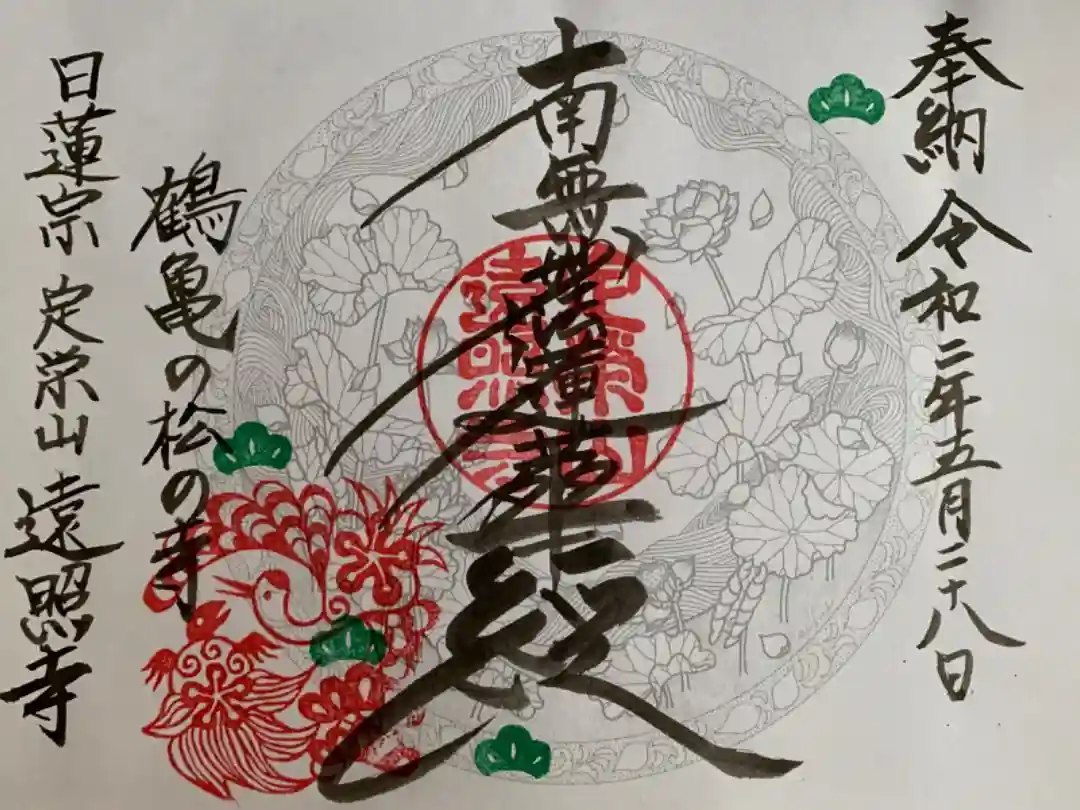 奉納 令和二年五月二十八日
南無妙法蓮華経
定栄山
遠照寺
鶴亀の松の寺
日蓮宗 定栄山 遠照寺